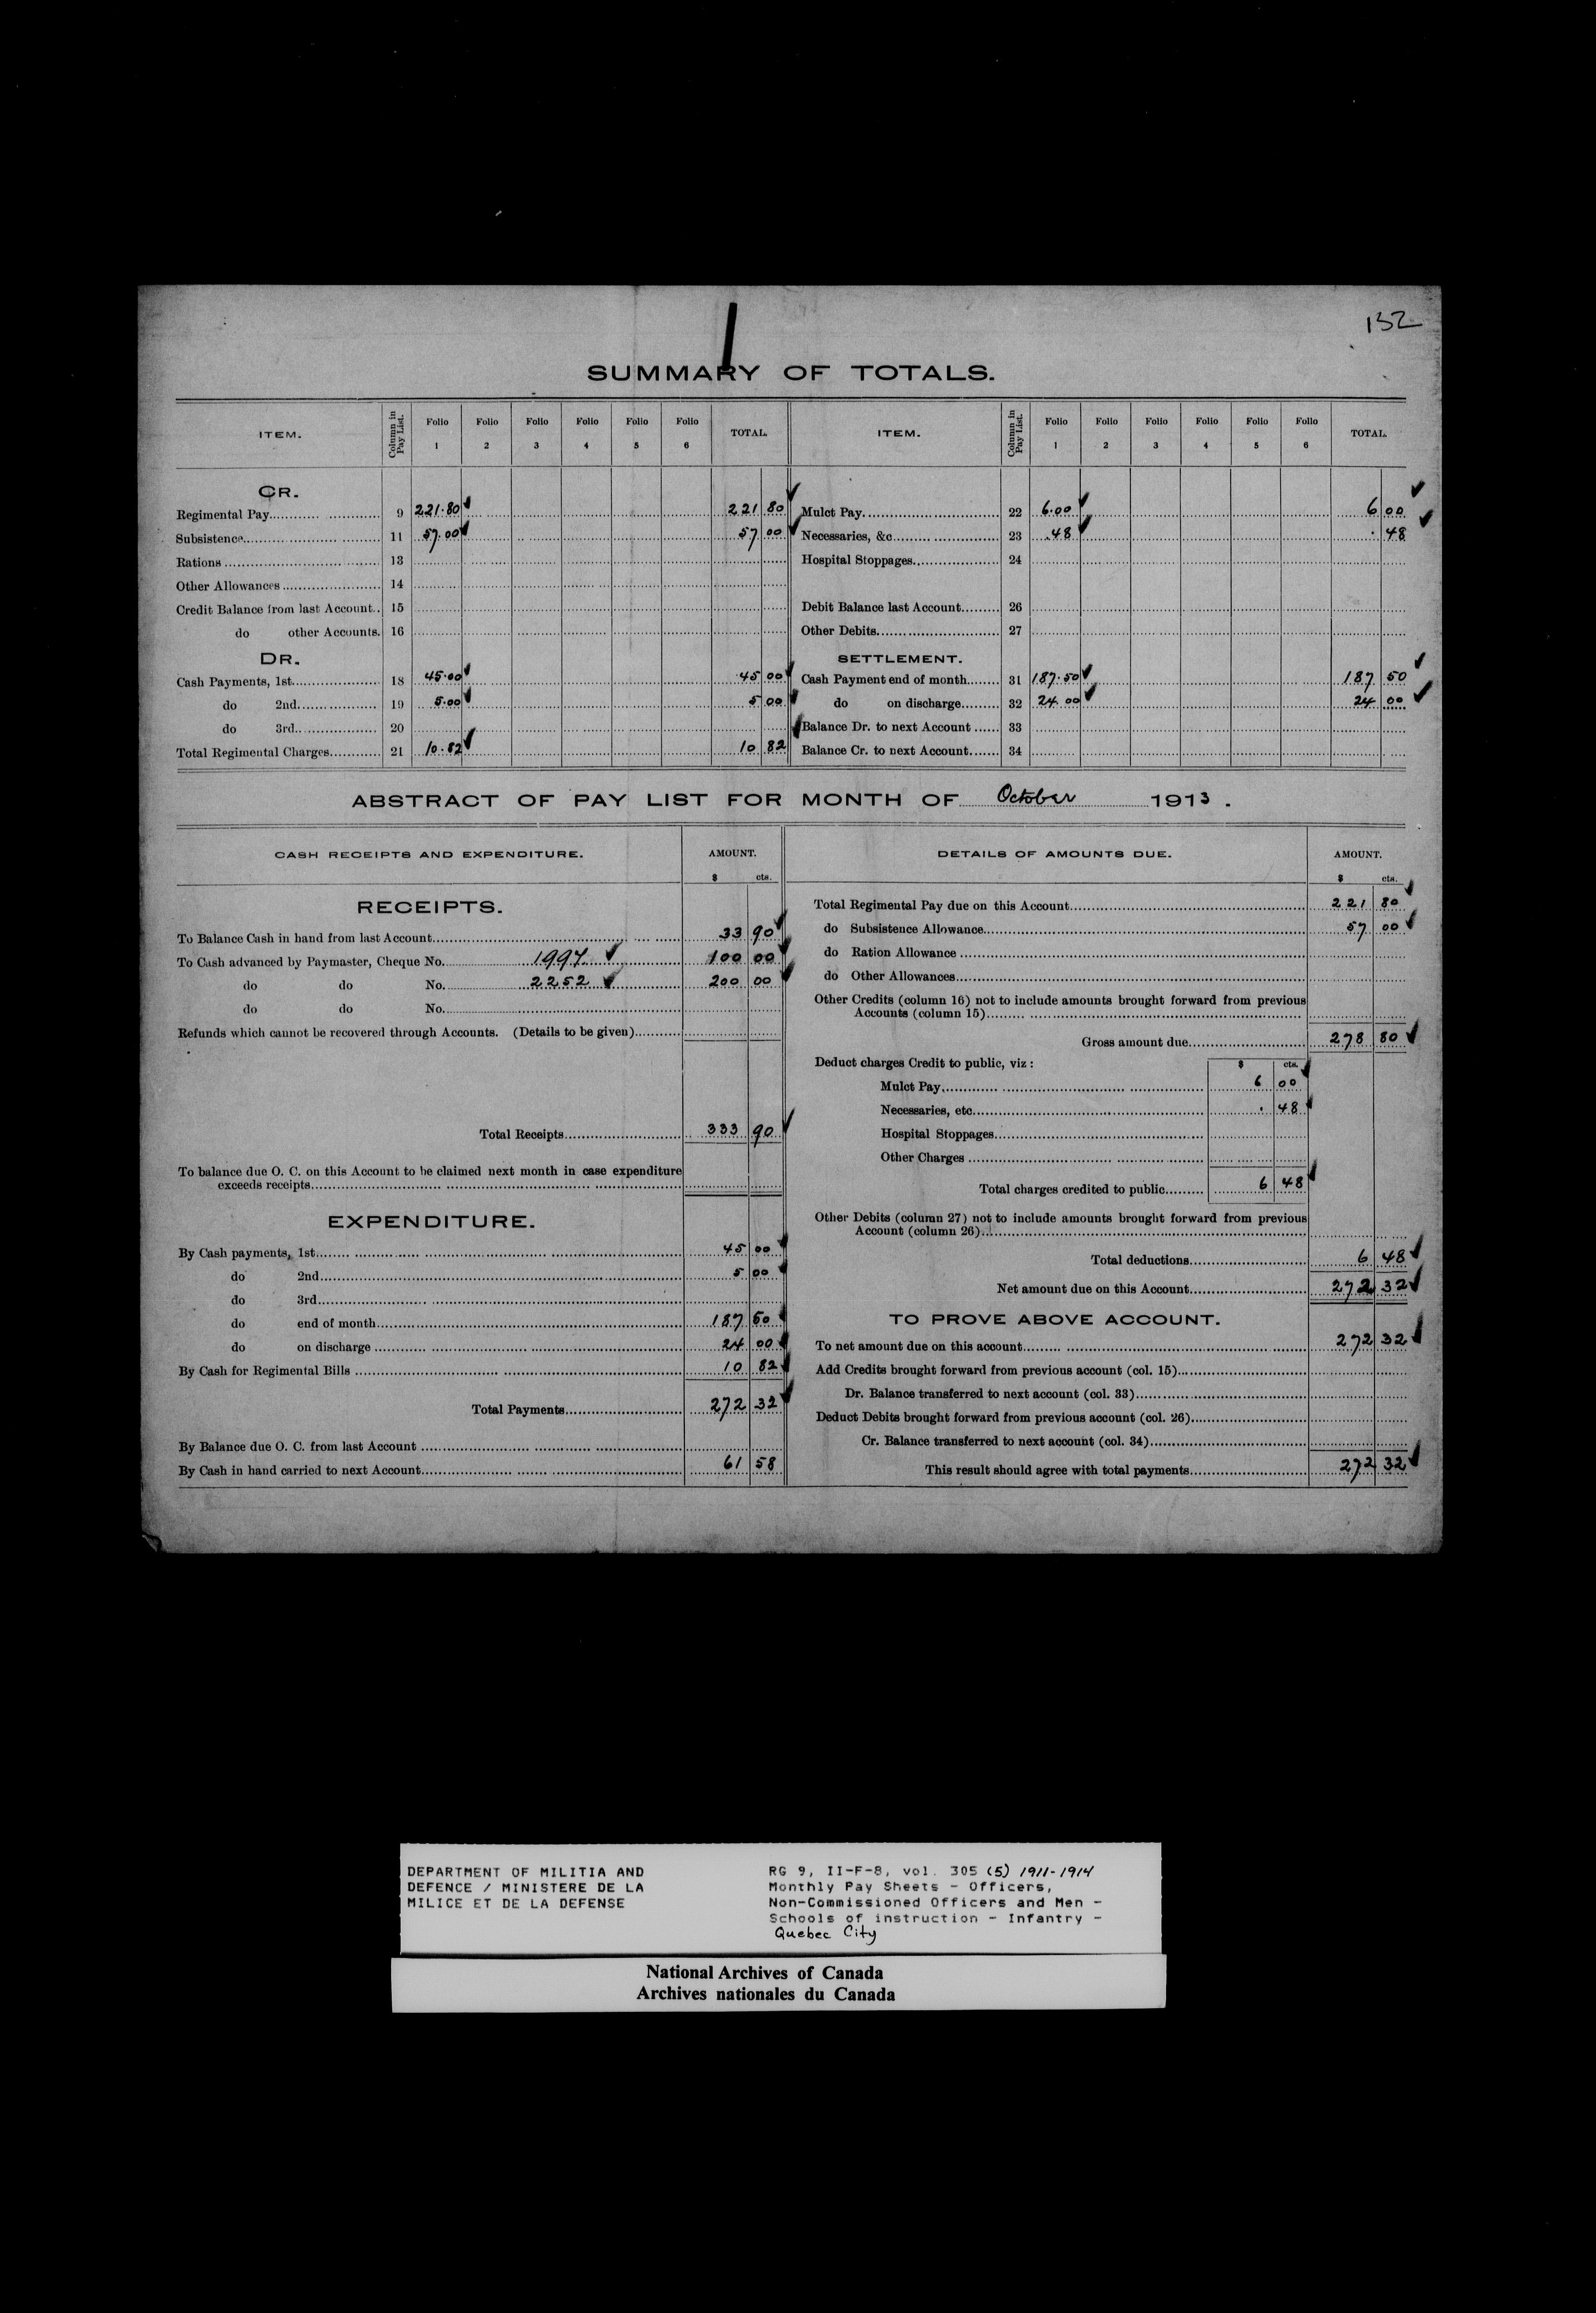 132
SUMMARY OF TOTALS.
ITEM. Column in Pay List. Folio 1 Folio 2 Folio 3 Folio 4 Folio 5 Folio 6 TOTAL. ITEM. Column in Pay List. Folio 1 Folio 2 Folio 3 Folio 4 Folio 5 Folio 6 TOTAL.
CR.
Regimental Pay 9 221.80 221 80 Mulct Pay 22 6.00 6 00
Subsistence 11 57.00 57 00 Necessaries, &c 23 .48 . 48
Rations 13 Hospital Stoppages 24
Other Allowances 14
Credit Balance from last Account 15 Debit Balance last Account 26
do other Accounts. 16 Other Debits 27
DR. SETTLEMENT.
Cash Payments, 1st 18 45.00 45 00 Cash Payment end of month 31 187.50 187 50
do 2nd 19 5.00 5 00 do on discharge 32 24.00 24 00
do 3rd 20 Balance Dr. to next Account 33
Total Regimental Charges 21 10.82 10 82 Balance Cr. to next Account 34
ABSTRACT OF PAY LIST FOR MONTH OF October 1913.
CASH RECEIPTS AND EXPENDITURE. AMOUNT. $ cts.
RECEIPTS.
To Balance Cash in hand from last Account 33 90
To Cash advanced by Paymaster, Cheque No. 1997 100 00
do do No. 2252 200 00
do do No.
Refunds which cannot be recovered through Accounts. (Details to be given)
Total Receipts 333 90
To balance due O. C. on this Account to be claimed next month in case expenditure
exceeds receipts
EXPENDITURE.
By Cash payments, 1st 45 00
do 2nd 5 00
do 3rd
do end of month 187 50
do on discharge 24 00
By Cash for Regimental Bills 10 82
Total Payments 272 32
By Balance due O. C. from last Account
By Cash in hand carried to next Account 61 58
DETAILS OF AMOUNTS DUE. AMOUNT. $ cts.
Total Regimental Pay due on this Account 221 80
do Subsistence Allowance 57 00
do Ration Allowance
do Other Allowances
Other Credits (column 16) not to include amounts brought forward from previous
Accounts (column 15)
Gross amount due 278 80
Deduct charges Credit to public, viz : $ cts.
Mulct Pay 6 00
Necessaries, etc . 48
Hospital Stoppages
Other Charges
Total charges credited to public 6 48
Other Debits (column 27) not to include amounts brought forward from previous
Account (column 26)
Total deductions 6 48
Net amount due on this Account 272 32
TO PROVE ABOVE ACCOUNT.
To net amount due on this account 272 32
Add Credits brought forward from previous account (col. 15)
Dr. Balance transferred to next account (col. 33)
Deduct Debits brought forward from previous account (col. 26)
Cr. Balance transferred to next account (col. 34)
This result should agree with total payments 272 32
DEPARTMENT OF MILITIA AND
DEFENCE / MINISTERE DE LA
MILICE ET DE LA DEFENSE
RG 9, II-F-8, vol. 305 (5) 1911-1914
Monthly Pay Sheets - Officers,
Non-Commissioned Officers and Men -
Schools of instruction - Infantry -
Quebec City
National Archives of Canada
Archives nationales du Canada